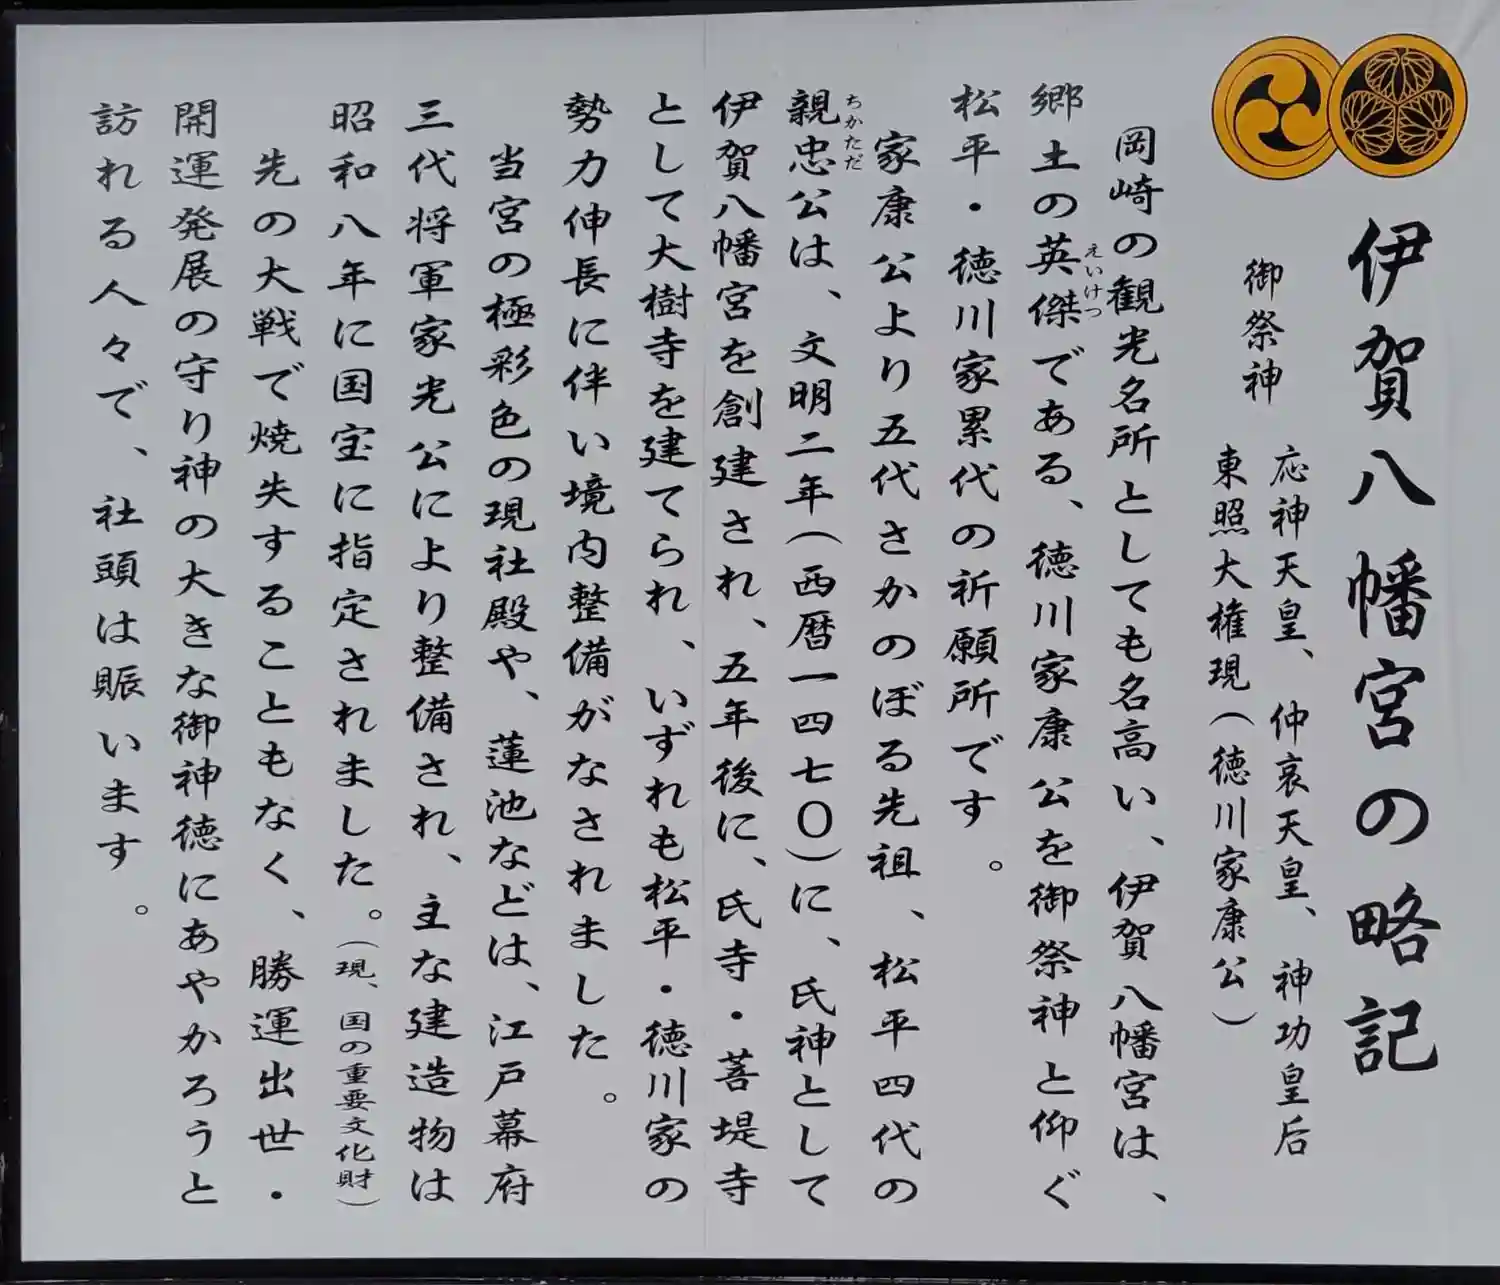 伊賀八幡宮の略記
御祭神
応神天皇、仲哀天皇、神功皇后
東照大権現（徳川家康公）
岡崎の観光名所としても名高い、伊賀八幡宮は、
郷土の英傑である、徳川家康公を御祭神と仰ぐ
えいけつ
松平・徳川家累代の祈願所です。
家康公より五代さかのぼる先祖、松平四代の
ちかただ
親忠公は、文明二年（西暦一四七〇）に、氏神として
伊賀八幡宮を創建され、五年後に、氏寺・菩堤寺
として大樹寺を建てられ、いずれも松平・徳川家の
勢力伸長に伴い境内整備がなされました。
当宮の極彩色の現社殿や、蓮池などは、江戸幕府
三代将軍家光公により整備され、主な建造物は
昭和八年に国宝に指定されました。（現、国の重要文化財）
先の大戦で焼失することもなく、勝運出世・
開運発展の守り神の大きな御神徳にあやかろうと
訪れる人々で、社頭は賑います。